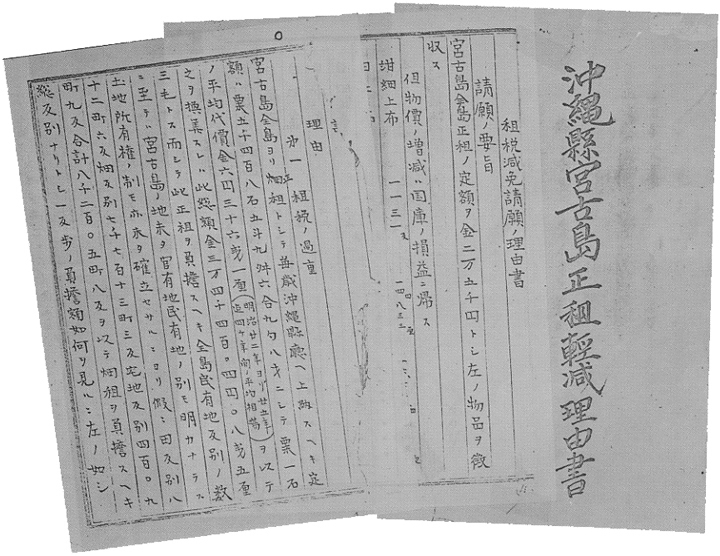 沖縄縣宮古島正租輕減理由書
租税減免請願ノ理由書
請願ノ要旨
宮古島全島正租ノ定額ヲ金二万五千円トシ左ノ物品ヲ徴
収ス
但物價ノ増減ハ国庫ノ損益ニ帰ス
紺細上布
理由
第一 租税ノ過重
宮古島全島ヨリ畑租トシテ毎歳沖縄縣廳ヘ上納スヘキ定
額ハ粟五千四百八石五斗九舛六合九勺八才ニシテ粟一石
ノ平均代價金六円三十六戔一厘(明治廿二年ヨリ廿五年迄四ヶ年間ノ平均相場)ヲ以テ
之ヲ換美スレハ此総額金三万四千四百〇四円〇八戔五厘
三毛トス而シテ此正租ヲ負擔スヘキ全島民有地反別ノ数
ニ至テハ宮古島ノ地未タ官有地民有地ノ別モ明カナラス
土地所有權ノ制モ亦未タ確立セサルニヨリ假ニ田反別八
十二町六反畑反別七千七百十三町三反宅地反別四百〇九
町九反合計八千二百〇五町八反ヲ以テ畑租ヲ負擔スヘキ
総反別ナリトシ一反歩ノ負擔額如何ヲ見ルニ左ノ如シ